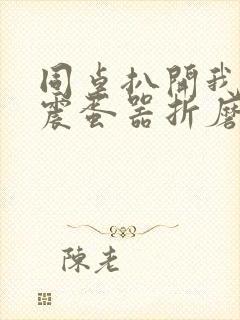 同桌扒開我
震蛋器折磨
陳老